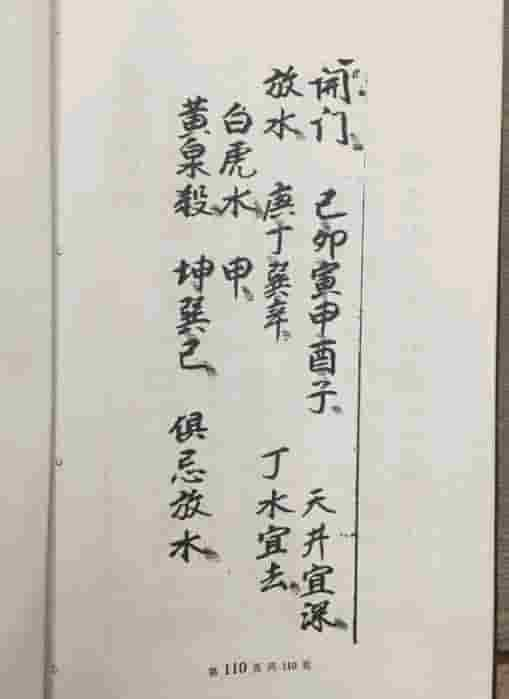 開门 己卯寅申酉子 天井宜深
放水 庚丁巽辛 丁水宜去
白虎水 甲
黄泉殺 坤巽己 俱忌放水
第 110 页 共 110 页